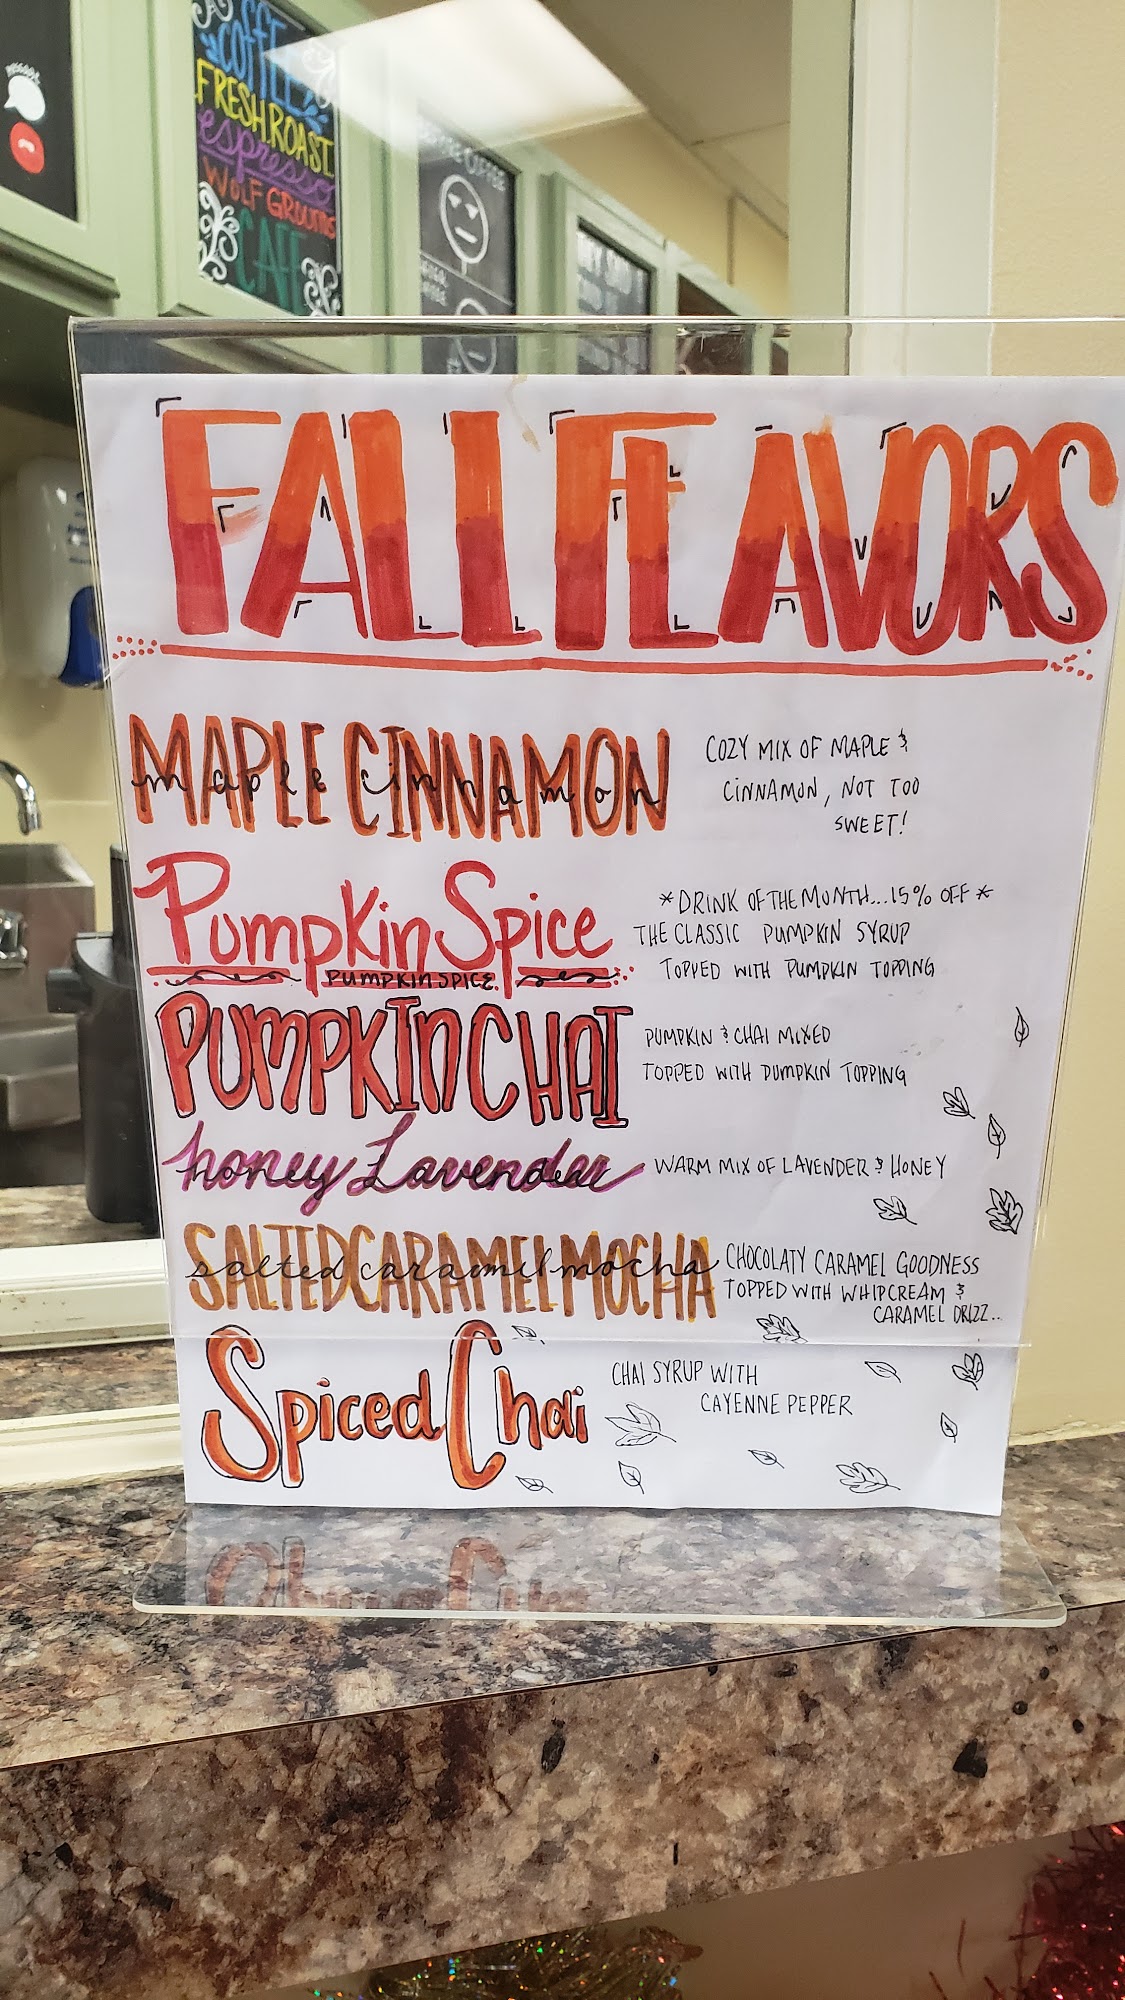 COFFEE
FRESH ROAST
espresso
WOLF GROUNDS
CAFE
COFFEE
FALL FLAVORS
MAPLE CINNAMON
maple cinnamon
COZY MIX OF MAPLE &
CINNAMON, NOT TOO
SWEET!
Pumpkin Spice
PUMPKIN SPICE
*DRINK OF THE MONTH...15% OFF*
THE CLASSIC PUMPKIN SYRUP
TOPPED WITH PUMPKIN TOPPING
PUMPKIN CHAI
PUMPKIN & CHAI MIXED
TOPPED WITH PUMPKIN TOPPING
honey Lavender
WARM MIX OF LAVENDER & HONEY
SALTED CARAMEL MOCHA
salted caramel mocha
CHOCOLATY CARAMEL GOODNESS
TOPPED WITH WHIPCREAM &
CARAMEL DRIZZ...
Spiced Chai
CHAI SYRUP WITH
CAYENNE PEPPER